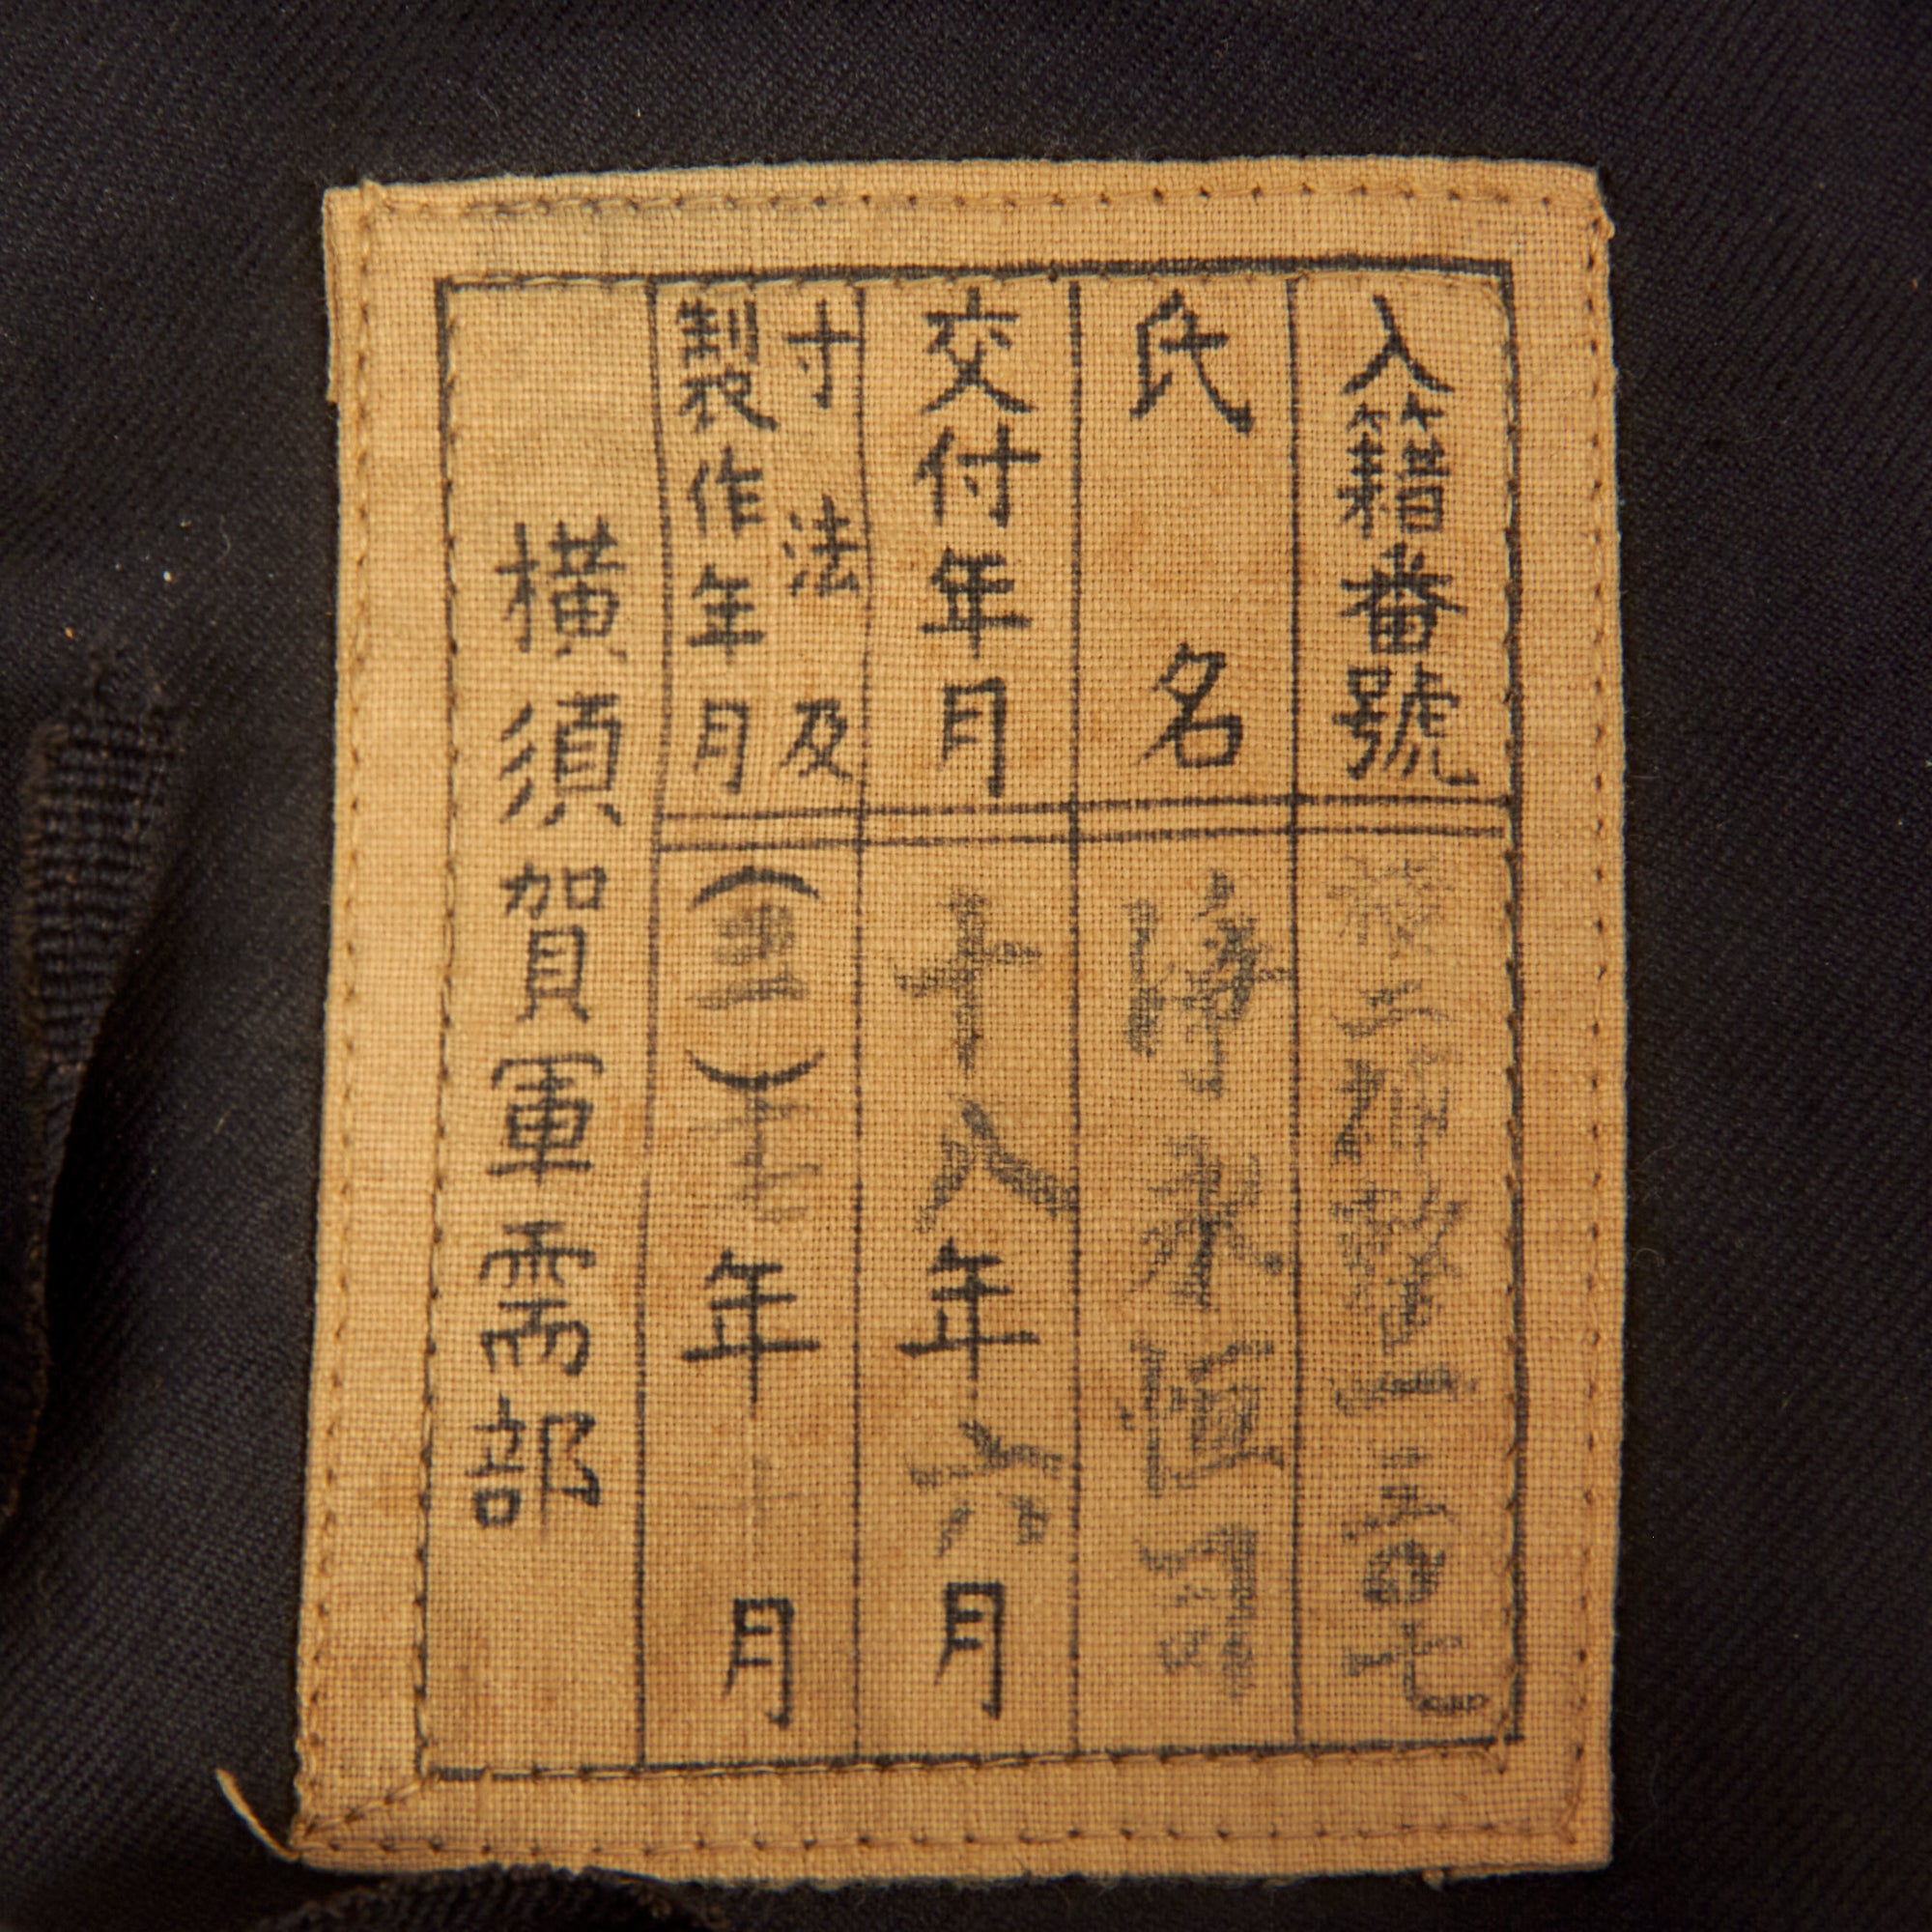 入籍番號 工 一三四七
氏名 恒司
交付年月 十八年六月
寸法及
製作年月 ( ) 年 月
横須賀軍需部